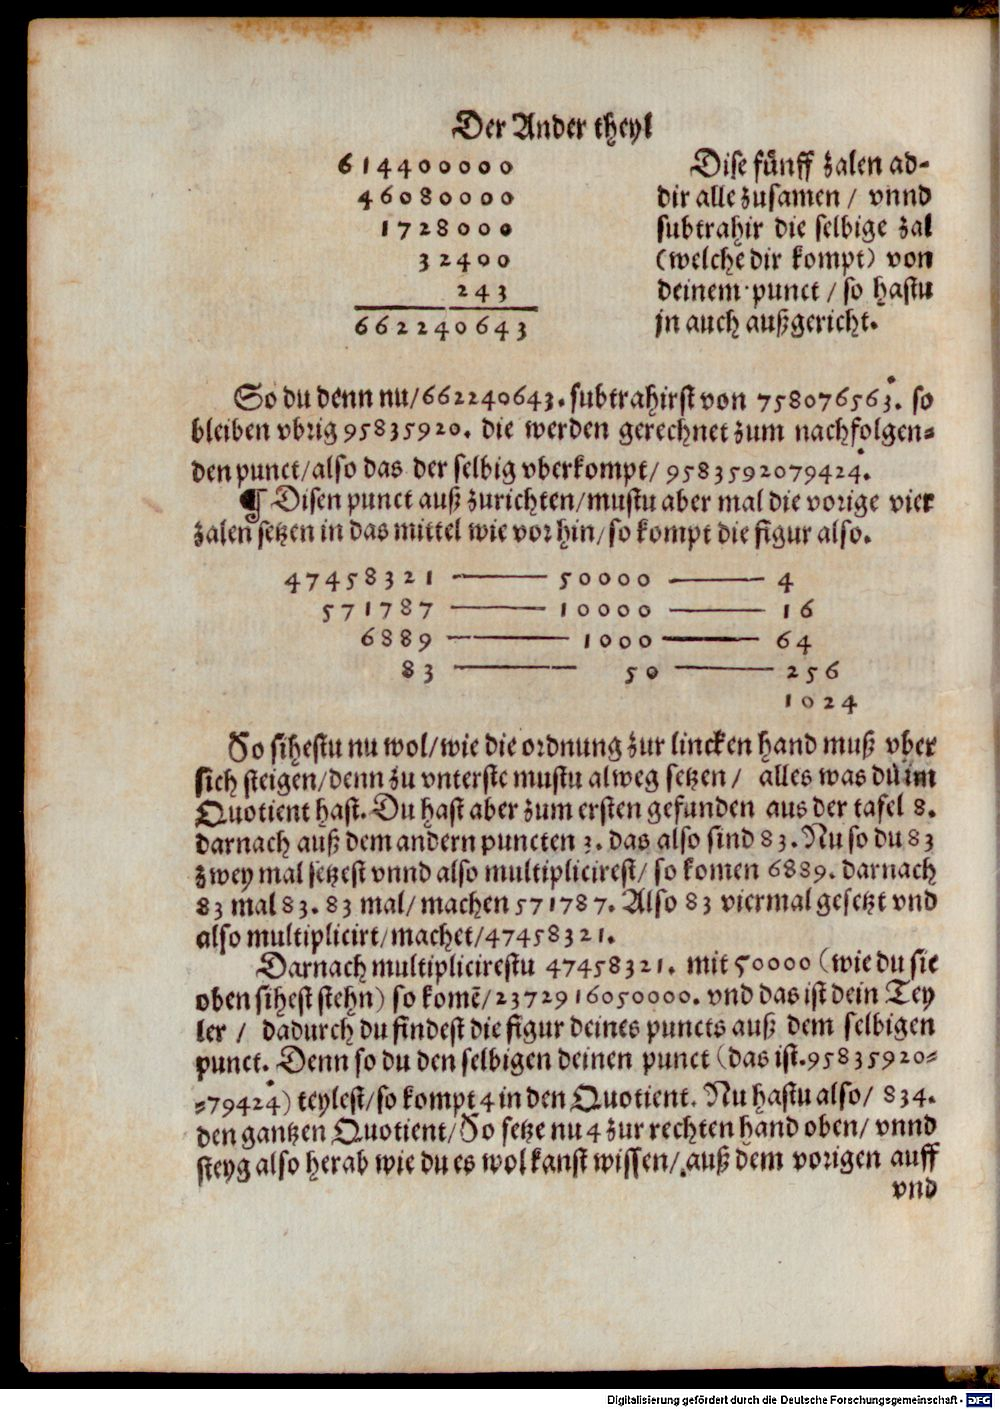 Der Ander theyl
614400000
46080000
1728000
32400
243
662240643
Dise fünff zalen ad-
dir alle zusamen / vnnd
subtrahir die selbige zal
(welche dir kompt) von
deinem punct / so hastu
jn auch außgericht.
So du denn nu/662240643. subtrahirst von 758076563. so
bleiben vbrig 95835920. die werden gerechnet zum nachfolgen=
den punct/also das der selbig vberkompt/ 9583592079424.
¶ Disen punct auß zurichten/mustu aber mal die vorige vier
zalen setzen in das mittel wie vorhin/so kompt die figur also.
47458321 — 50000 — 4
571787 — 10000 — 16
6889 — 1000 — 64
83 — 50 — 256
1024
So sihestu nu wol/wie die ordnung zur lincken hand muß vber
sich steigen/denn zu vnterste mustu alweg setzen / alles was du im
Quotient hast. Du hast aber zum ersten gefunden aus der tafel 8.
darnach auß dem andern puncten 3. das also sind 83. Nu so du 83
zwey mal setzest vnnd also multiplicirest/ so komen 6889. darnach
83 mal 83. 83 mal/ machen 571787. Also 83 viermal gesetzt vnd
also multiplicirt/machet/47458321.
Darnach multiplicirestu 47458321. mit 50000 (wie du sie
oben sihest stehn) so komē/2372916050000. vnd das ist dein Tey
ler / dadurch du findest die figur deines puncts auß dem selbigen
punct. Denn so du den selbigen deinen punct (das ist.95835920=
=79424) teylest/so kompt 4 in den Quotient. Nu hastu also/ 834.
den gantzen Quotient/So setze nu 4 zur rechten hand oben/ vnnd
steyg also herab wie du es wol kanst wissen/ auß dem vorigen auff
vnd
Digitalisierung gefördert durch die Deutsche Forschungsgemeinschaft - DFG